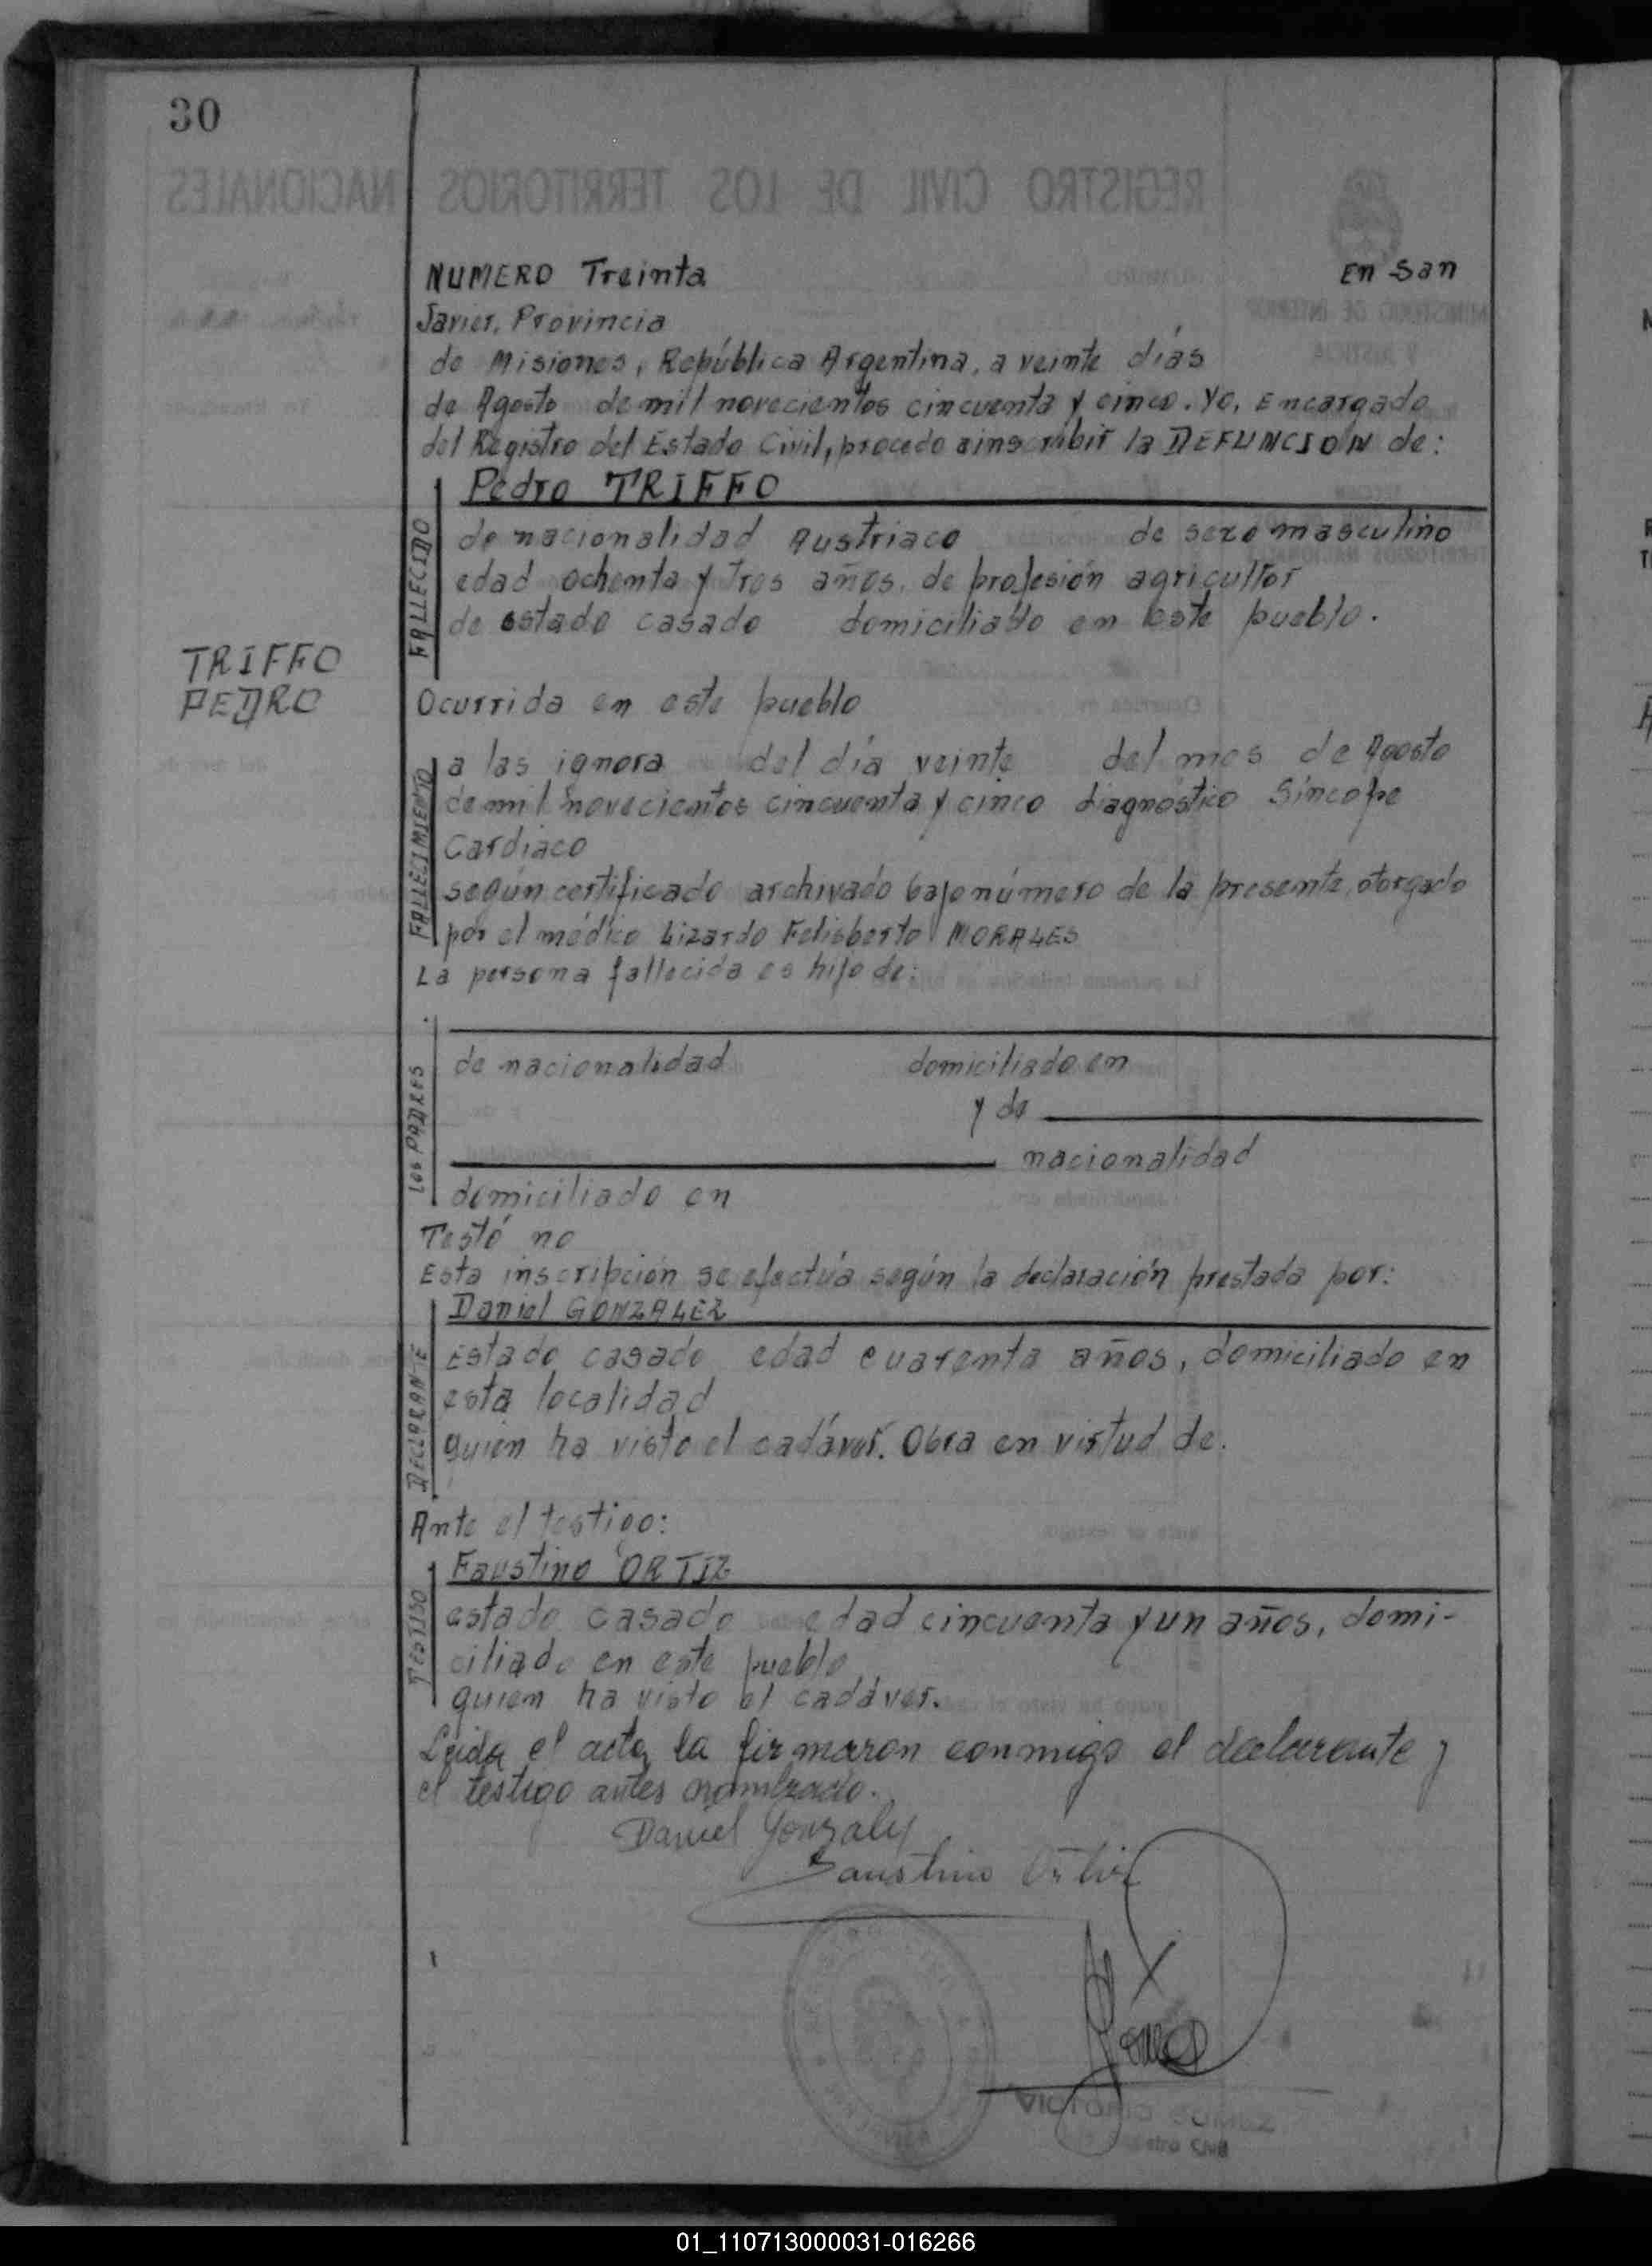 30
NUMERO Treinta En San
Javier, Provincia
de Misiones, República Argentina, a veinte días
de Agosto de mil novecientos cincuenta y cinco. Yo, Encargado
del Registro del Estado Civil, procedo a inscribir la DEFUNCION de:
Pedro TRIFFO
FALLECIDO
de nacionalidad Austriaco de sexo masculino
edad ochenta y tres años, de profesión agricultor
de estado casado domiciliado en este pueblo.
TRIFFO
PEDRO
Ocurrida en este pueblo
FALLECIMIENTO
a las ignora del día veinte del mes de Agosto
de mil novecientos cincuenta y cinco diagnóstico Síncope
Cardiaco
según certificado archivado bajo número de la presente, otorgado
por el médico Lizardo Felisberto MORALES
La persona fallecida es hijo de:
LOS PADRES
de nacionalidad domiciliado en
y de
nacionalidad
domiciliado en
Testó no
Esta inscripción se efectúa según la declaración prestada por:
Daniel GONZALEZ
DECLARANTE
Estado casado edad cuarenta años, domiciliado en
esta localidad
quien ha visto el cadáver. Obra en virtud de.
Ante el testigo:
Faustino ORTIZ
TESTIGO
estado casado edad cincuenta y un años, domi-
ciliado en este pueblo
quien ha visto el cadáver.
Leida el acta, la firmaron conmigo el declarante y
el testigo antes nombrado.
Daniel Gonzalez
Faustino Ortiz
VICTORIO GOMEZ
Civil
01_110713000031-016266